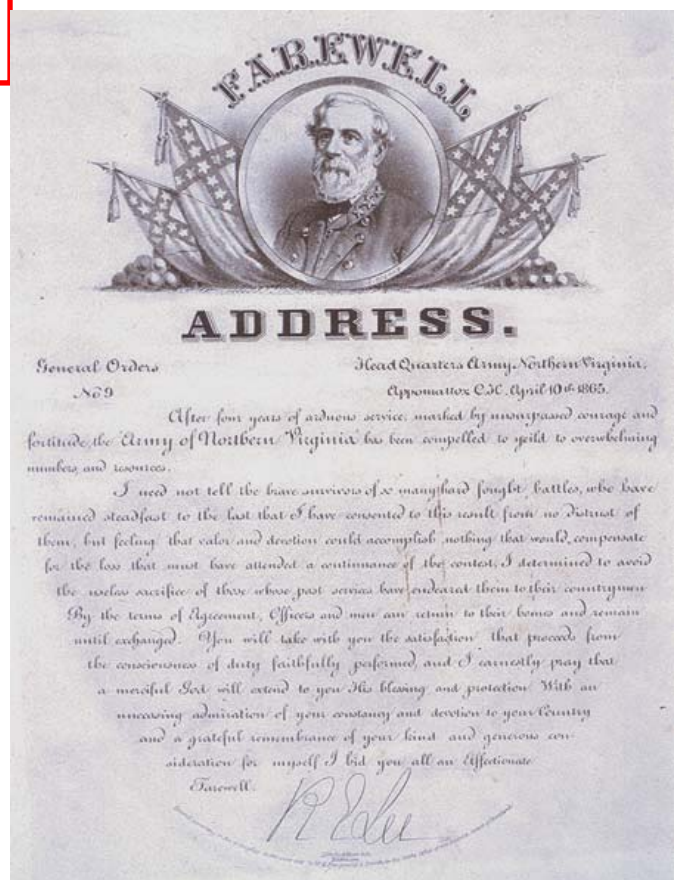 FAREWELL
ADDRESS.
General Orders
No 9
Head Quarters Army Northern Virginia,
Appomattox C.H. April 10th 1865.
After four years of arduous service, marked by unsurpassed courage and
fortitude, the Army of Northern Virginia has been compelled to yeild to overwhelming
numbers and resources.
I need not tell the brave survivors of so many hard fought battles, who have
remained steadfast to the last that I have consented to this result from no distrust of
them, but feeling that valor and devotion could accomplish nothing that would compensate
for the loss that must have attended a continuance of the contest, I determined to avoid
the useless sacrifice of those whose past services have endeared them to their countrymen
By the terms of Agreement, Officers and men can return to their homes and remain
until exchanged. You will take with you the satisfaction that proceeds from
the consciousness of duty faithfully performed, and I earnestly pray that
a merciful God will extend to you His blessing and protection With an
unceasing admiration of your constancy and devotion to your Country
and a grateful remembrance of your kind and generous con-
sideration for myself I bid you all an Affectionate
Farewell.
R E Lee